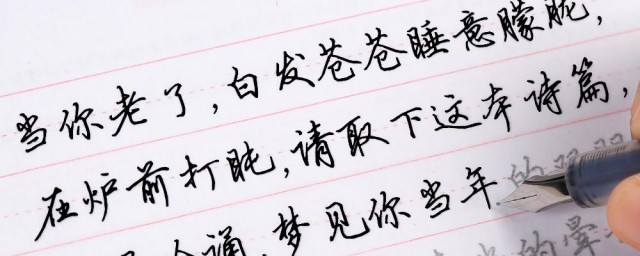 当你老了,白发苍苍睡意朦胧,
在炉前打盹,请取下这本诗篇,
诵,梦见你当年的
的晕